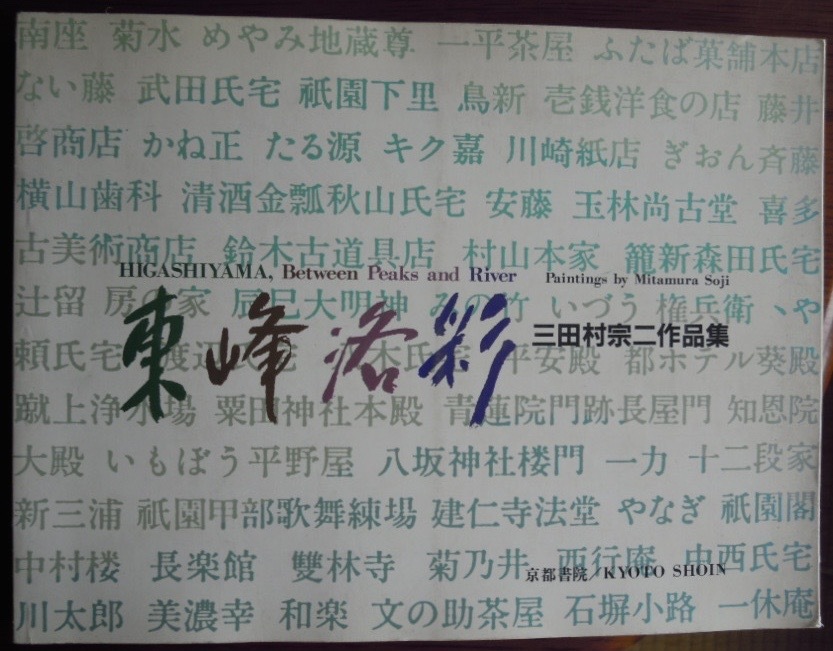 南座 菊水 めやみ地蔵尊 一平茶屋 ふたば菓舗本店
ない藤 武田氏宅 祇園下里 鳥新 壱銭洋食の店 藤井
啓商店 かね正 たる源 キク嘉 川崎紙店 ぎおん斉藤
横山歯科 清酒金瓢秋山氏宅 安藤 玉林尚古堂 喜多
古美術商店 鈴木古道具店 村山本家 籠新森田氏宅
HIGASHIYAMA, Between Peaks and River Paintings by Mitamura Soji
辻留 房の家 辰巳大明神 みの竹 いづう 権兵衛 ヽや
東峰洛彩 三田村宗二作品集
頼氏宅 渡辺氏宅 木氏宅 平安殿 都ホテル葵殿
蹴上浄水場 粟田神社本殿 青蓮院門跡長屋門 知恩院
大殿 いもぼう平野屋 八坂神社楼門 一力 十二段家
新三浦 祇園甲部歌舞練場 建仁寺法堂 やなぎ 祇園閣
中村楼 長楽館 雙林寺 菊乃井 西行庵 中西氏宅
京都書院/KYOTO SHOIN
川太郎 美濃幸 和楽 文の助茶屋 石塀小路 一休庵